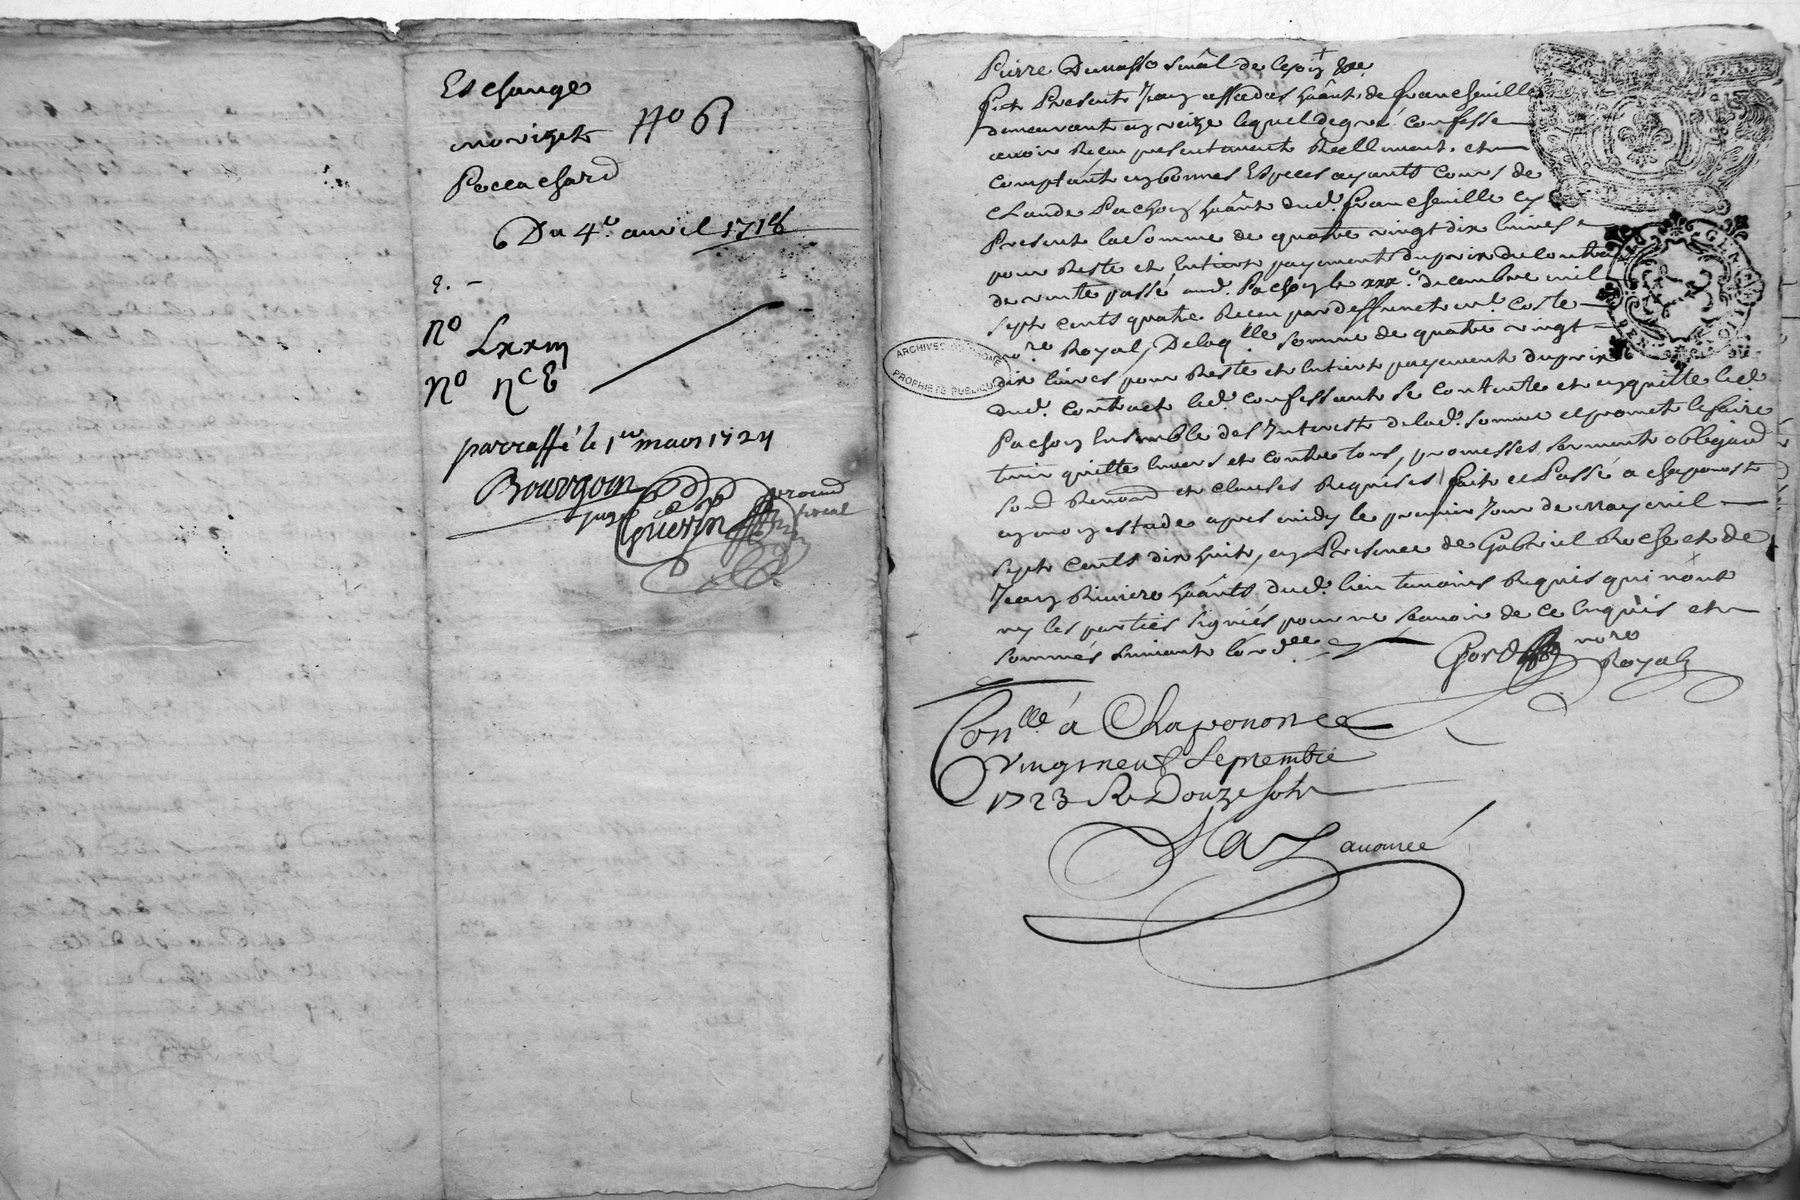 Eschange
No 61
Poccachard
Du 4e. avril 1718
no Lxxiii
no
parraffé le 1er mars 1724
Bourgoin
juge
Guerin
procureur
fiscal
Pierre
Present Jean habitant de francheuille
demeurant lequel de gré confesse
avoir Receu presentement Reellement et
comptant en bonnes Especes ayants cours de
Claude Pachon habitant dud. francheuille cy
Present la somme de quatre vingt dix livres
pour Reste et Entiert payement du prix du contrat
de vente passé aud. Pachon le xxxe. decembre mil
sept cents quatre Receu par deffunct me. Coste
nore Royal, De laqlle somme de quatre vingt
dix livres pour Reste et Entiert payement du prix
dud. contract led. confessant se contente et en quitte led.
Pachon Ensemble des Interests de lad. somme et promet le faire
tenir quitte Envers et contre tous, promesses serments obligeans
et clauses Requises fait et Passé a Chaponost
en mon estude apres midy le premier Jour de may mil
sept cents dix huit, en Presence de Gabriel Roche et de
Jean Riviere habitants dud. lieu temoins Requis qui n'ont
ny les parties signés pour ne scavoir de ce Enquis et
sommés suivant l'ordce
nore
Royal
Conlle a Chaponon ce
vingt neuf Septembre
1723 R Douze sols
ARCHIVES DU RHONE
PROPRIETE PUBLIQUE
GENERALITE DE